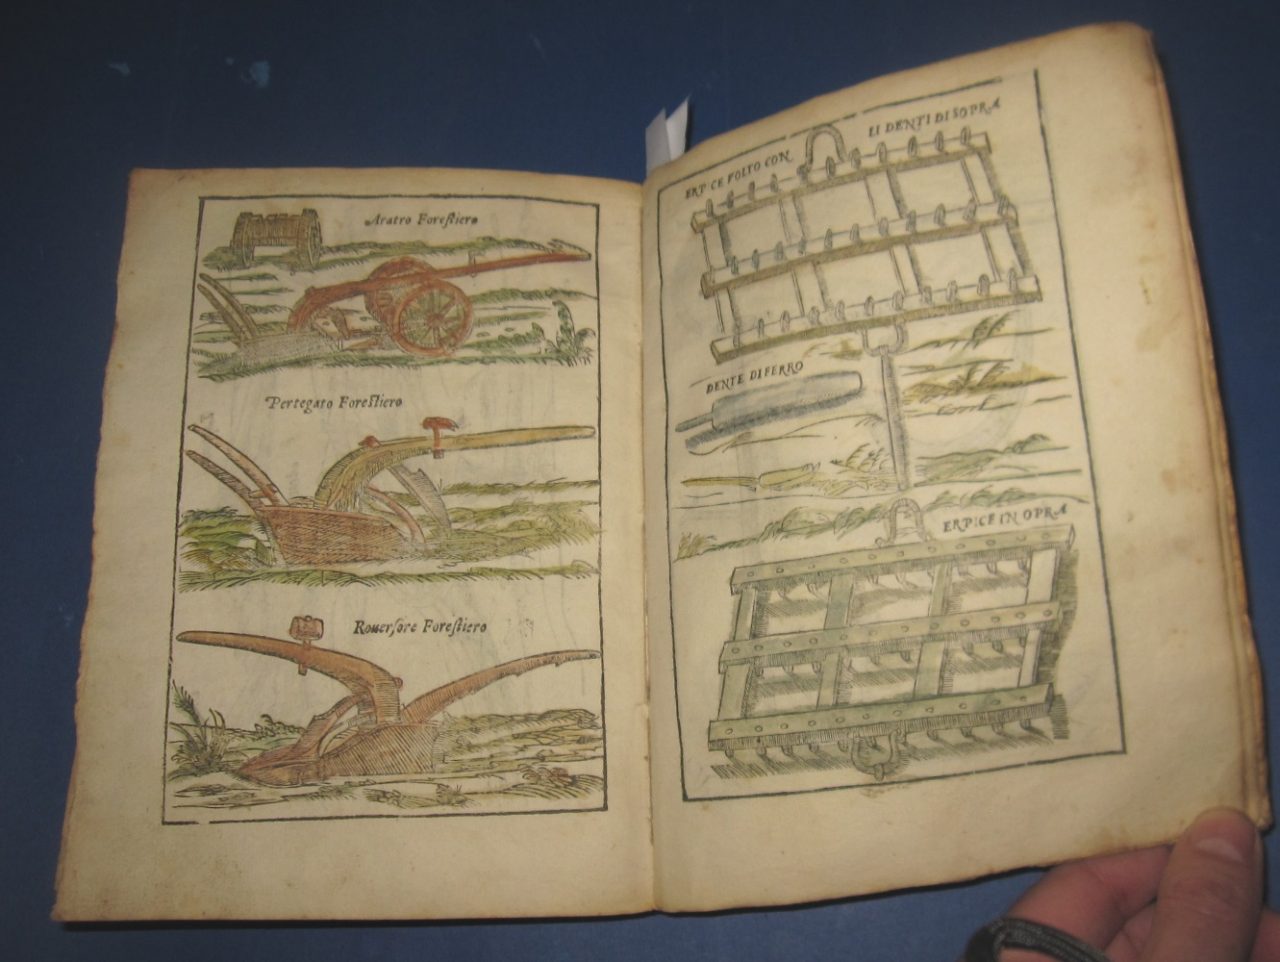 Aratro Foreſtiero
Pertegato Foreſtiero
Rouerſore Foreſtiero
ERPICE VOLTO CON
LI DENTI DI SOPRA
DENTE DI FERRO
ERPICE IN OPRA